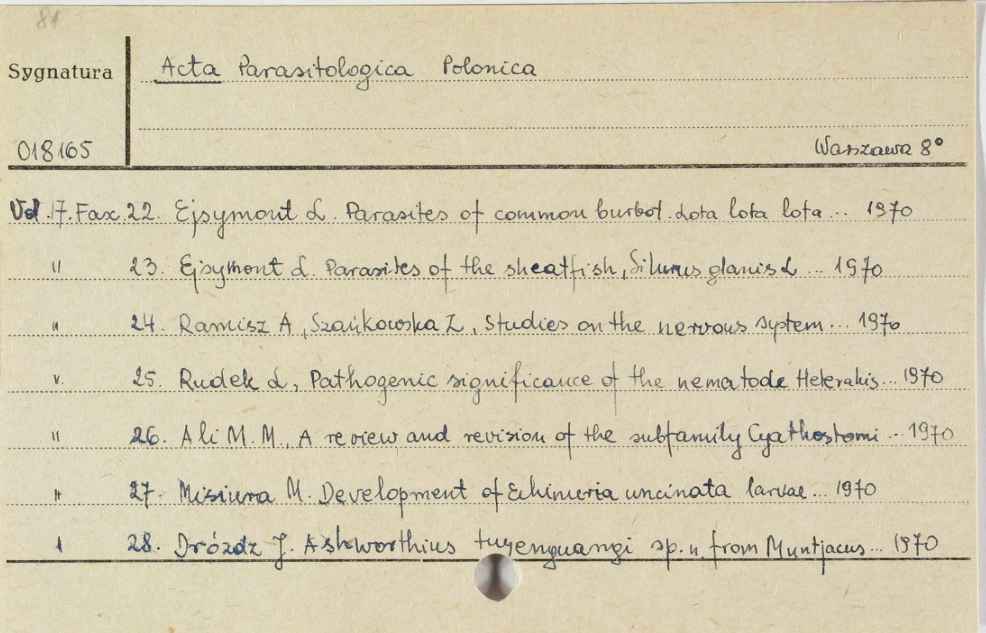 81
Sygnatura
Acta Parasitologica Polonica
018165
Warszawa 8°
Vol. 17. Fax. 22. Ejsymont L. Parasites of common burbot. Lota lota lota... 1970
" 23. Ejsymont L. Parasites of the sheatfish, Silurus glanis L... 1970
" 24. Ramisz A, Szańkowska Z, Studies on the nervous system... 1970
" 25. Rudek L, Pathogenic significance of the nematode Heterakis... 1970
" 26. Ali M. M., A review and revision of the subfamily Cyathostomi... 1970
" 27. Misiura M. Development of Echinuria uncinata larvae... 1970
" 28. Dróżdż J. Ashworthius tuyenquangi sp. n. from Muntjacus... 1970